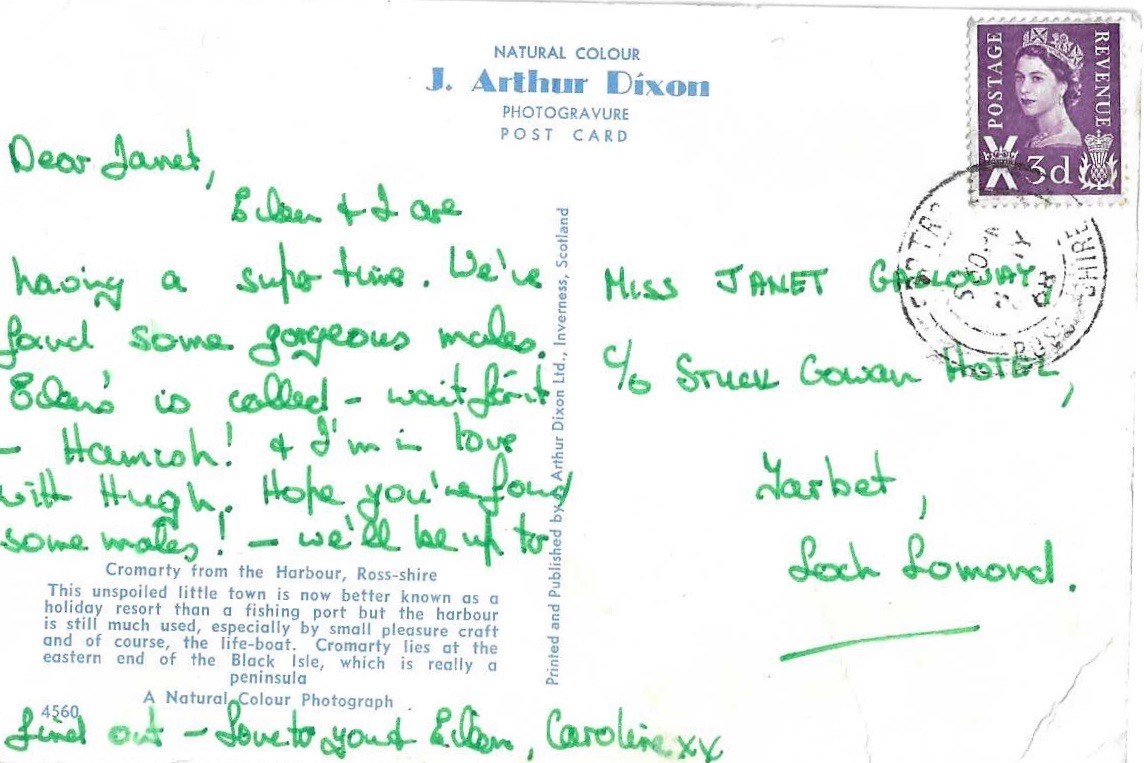 NATURAL COLOUR
J. Arthur Dixon
PHOTOGRAVURE
POST CARD
POSTAGE
REVENUE
3d
Dear Janet,
Eileen & I are
having a super time. We've
found some gorgeous males.
Eileen's is called - wait for it
- Hamish! & I'm in love
with Hugh. Hope you've found
some males! - we'll be up to
Cromarty from the Harbour, Ross-shire
This unspoiled little town is now better known as a
holiday resort than a fishing port but the harbour
is still much used, especially by small pleasure craft
and of course, the life-boat. Cromarty lies at the
eastern end of the Black Isle, which is really a
peninsula
A Natural Colour Photograph
4560
find out - Love to you & Eileen, Caroline xx
Printed and Published by J. Arthur Dixon Ltd., Inverness, Scotland
MISS JANET GALLOWAY,
c/o STUCK GOWAN HOTEL,
Tarbet,
Loch Lomond.
ROSS-SHIRE